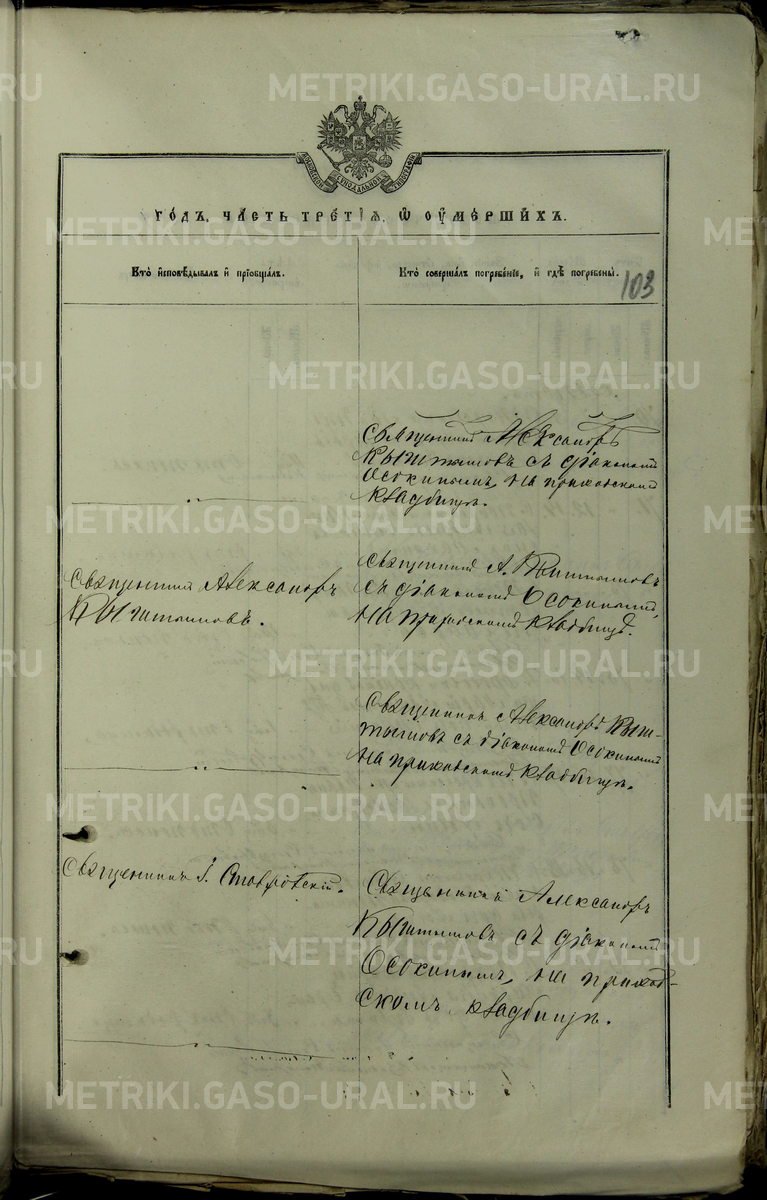 METRIKI.GASO-URAL.RU
МОСКОВСКОЙ СѴНОДАЛЬНОЙ ТИПОГРАФІИ
го́дъ, ча́сть тре́тїѧ, ѡ҆ оу҆ме́ршихъ.
Кто̀ и҆сповѣ́дывалъ и҆ прїѡбща́лъ.
Кто̀ соверша́лъ погребе́нїе, и҆ гдѣ̀ погребены̀.
103
Священникъ Александръ
Кыштымовъ съ діакономъ
Осокинымъ, на приходскомъ
кладбищѣ.
Священникъ Александръ
Кыштымовъ.
Священникъ А. Кыштымовъ
съ діакономъ Осокинымъ,
на приходскомъ кладбищѣ.
Священникъ Александръ Кыш-
тымовъ съ діакономъ Осокинымъ
на приходскомъ кладбищѣ.
Священникъ І. Ставровскій.
Священникъ Александръ
Кыштымовъ съ діакономъ
Осокинымъ, на приход-
скомъ кладбищѣ.